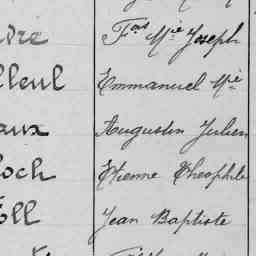 vre Fois Mie Joseph
lleul Emmanuel Mie
aux Augustin Julien
och Etienne Theophile
öll Jean Baptiste